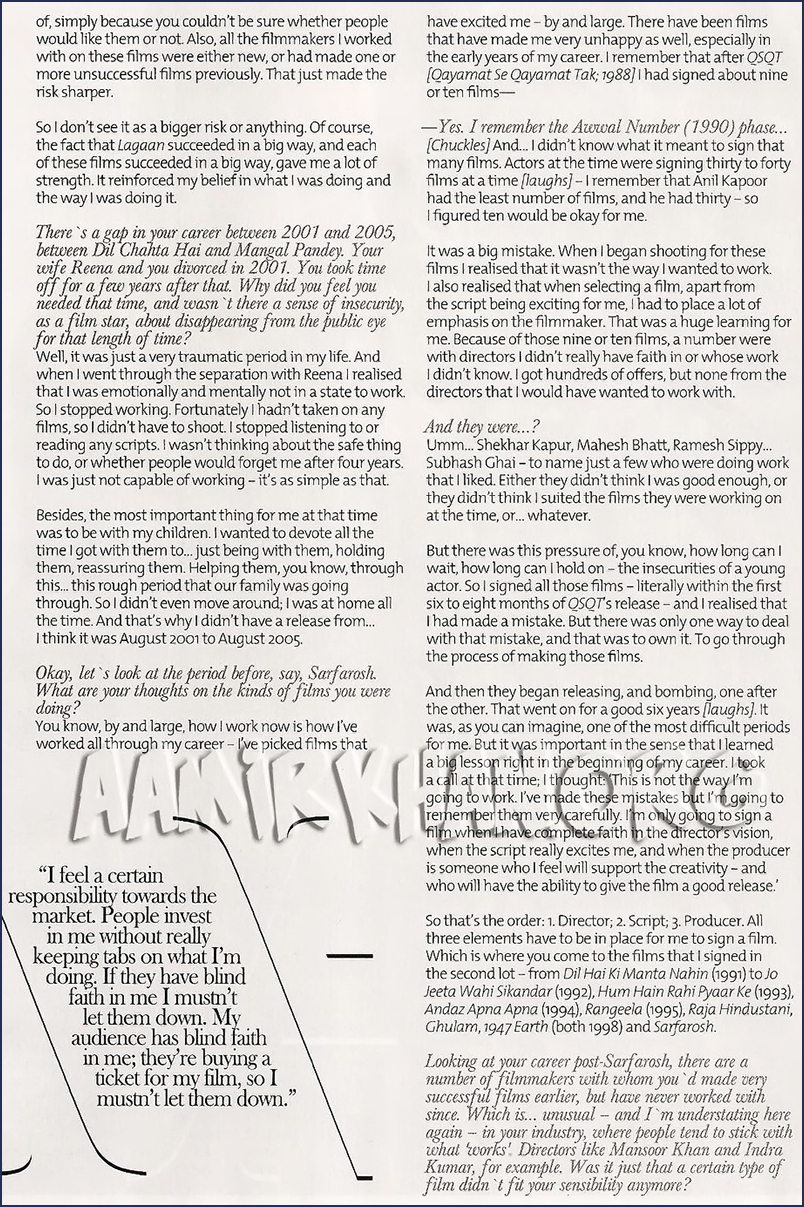 of, simply because you couldn't be sure whether people
would like them or not. Also, all the filmmakers I worked
with on these films were either new, or had made one or
more unsuccessful films previously. That just made the
risk sharper.
So I don't see it as a bigger risk or anything. Of course,
the fact that Lagaan succeeded in a big way, and each
of these films succeeded in a big way, gave me a lot of
strength. It reinforced my belief in what I was doing and
the way I was doing it.
There`s a gap in your career between 2001 and 2005,
between Dil Chahta Hai and Mangal Pandey. Your
wife Reena and you divorced in 2001. You took time
off for a few years after that. Why did you feel you
needed that time, and wasn`t there a sense of insecurity,
as a film star, about disappearing from the public eye
for that length of time?
Well, it was just a very traumatic period in my life. And
when I went through the separation with Reena I realised
that I was emotionally and mentally not in a state to work.
So I stopped working. Fortunately I hadn't taken on any
films, so I didn't have to shoot. I stopped listening to or
reading any scripts. I wasn't thinking about the safe thing
to do, or whether people would forget me after four years.
I was just not capable of working – it's as simple as that.
Besides, the most important thing for me at that time
was to be with my children. I wanted to devote all the
time I got with them to... just being with them, holding
them, reassuring them. Helping them, you know, through
this... this rough period that our family was going
through. So I didn't even move around; I was at home all
the time. And that's why I didn't have a release from...
I think it was August 2001 to August 2005.
Okay, let`s look at the period before, say, Sarfarosh.
What are your thoughts on the kinds of films you were
doing?
You know, by and large, how I work now is how I've
worked all through my career – I've picked films that
"I feel a certain
responsibility towards the
market. People invest
in me without really
keeping tabs on what I'm
doing. If they have blind
faith in me I mustn't
let them down. My
audience has blind faith
in me; they're buying a
ticket for my film, so I
mustn't let them down."
have excited me – by and large. There have been films
that have made me very unhappy as well, especially in
the early years of my career. I remember that after QSQT
[Qayamat Se Qayamat Tak; 1988] I had signed about nine
or ten films—
—Yes. I remember the Awwal Number (1990) phase...
[Chuckles] And... I didn't know what it meant to sign that
many films. Actors at the time were signing thirty to forty
films at a time [laughs] – I remember that Anil Kapoor
had the least number of films, and he had thirty – so
I figured ten would be okay for me.
It was a big mistake. When I began shooting for these
films I realised that it wasn't the way I wanted to work.
I also realised that when selecting a film, apart from
the script being exciting for me, I had to place a lot of
emphasis on the filmmaker. That was a huge learning for
me. Because of those nine or ten films, a number were
with directors I didn't really have faith in or whose work
I didn't know. I got hundreds of offers, but none from the
directors that I would have wanted to work with.
And they were...?
Umm... Shekhar Kapur, Mahesh Bhatt, Ramesh Sippy...
Subhash Ghai – to name just a few who were doing work
that I liked. Either they didn't think I was good enough, or
they didn't think I suited the films they were working on
at the time, or... whatever.
But there was this pressure of, you know, how long can I
wait, how long can I hold on – the insecurities of a young
actor. So I signed all those films – literally within the first
six to eight months of QSQT's release – and I realised that
I had made a mistake. But there was only one way to deal
with that mistake, and that was to own it. To go through
the process of making those films.
And then they began releasing, and bombing, one after
the other. That went on for a good six years [laughs]. It
was, as you can imagine, one of the most difficult periods
for me. But it was important in the sense that I learned
a big lesson right in the beginning of my career. I took
a call at that time; I thought: 'This is not the way I'm
going to work. I've made these mistakes but I'm going to
remember them very carefully. I'm only going to sign a
film when I have complete faith in the director's vision,
when the script really excites me, and when the producer
is someone who I feel will support the creativity – and
who will have the ability to give the film a good release.'
So that's the order: 1. Director; 2. Script; 3. Producer. All
three elements have to be in place for me to sign a film.
Which is where you come to the films that I signed in
the second lot – from Dil Hai Ki Manta Nahin (1991) to Jo
Jeeta Wahi Sikandar (1992), Hum Hain Rahi Pyaar Ke (1993),
Andaz Apna Apna (1994), Rangeela (1995), Raja Hindustani,
Ghulam, 1947 Earth (both 1998) and Sarfarosh.
Looking at your career post-Sarfarosh, there are a
number of filmmakers with whom you`d made very
successful films earlier, but have never worked with
since. Which is... unusual – and I`m understating here
again – in your industry, where people tend to stick with
what 'works'. Directors like Mansoor Khan and Indra
Kumar, for example. Was it just that a certain type of
film didn`t fit your sensibility anymore?
AAMIRKHAN.ORG©